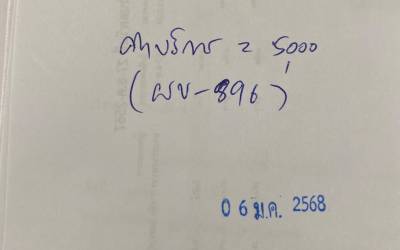 ค่าบริการ = 5,000
(ผบ-896)
06 ม.ค. 2568